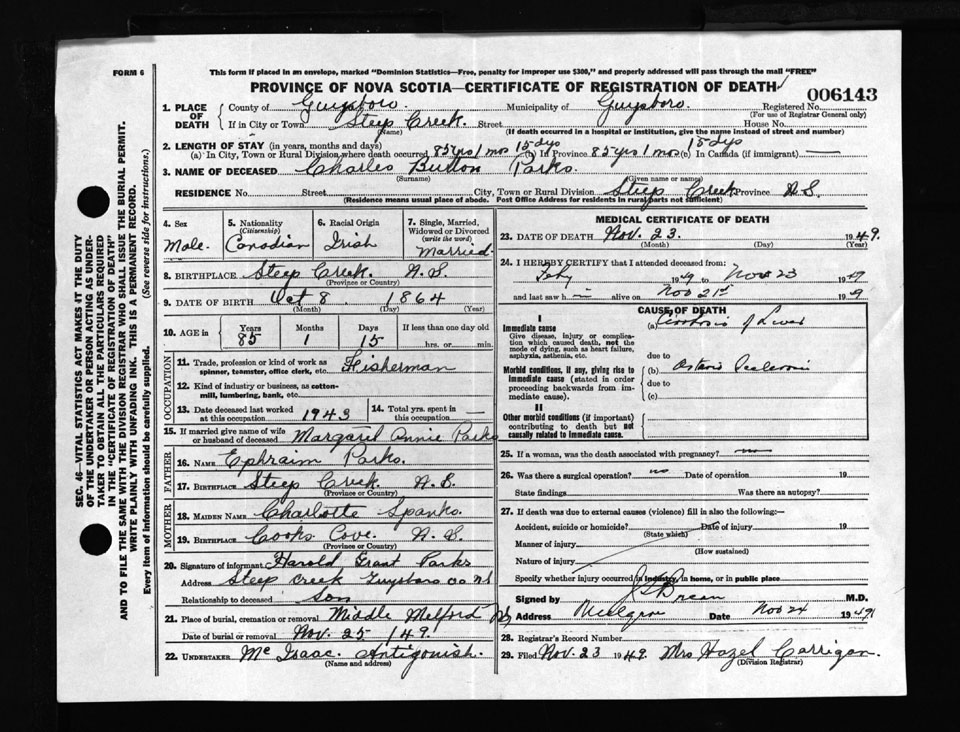 FORM 6
This form if placed in an envelope, marked "Dominion Statistics—Free, penalty for improper use $300," and properly addressed will pass through the mail "FREE"
PROVINCE OF NOVA SCOTIA—CERTIFICATE OF REGISTRATION OF DEATH
006143
1. PLACE OF DEATH
County of Guysboro. Municipality of Guysboro. Registered No.
(For use of Registrar General only)
If in City or Town Steep Creek. Street House No.
(Name) (If death occurred in a hospital or institution, give the name instead of street and number)
2. LENGTH OF STAY (in years, months and days)
(a) In City, Town or Rural Division where death occurred 85 yrs 1 mos 15 dys (b) In Province 85 yrs 1 mos 15 dys (c) In Canada (if immigrant) —
3. NAME OF DECEASED Charles Button Parks.
(Surname) (Given name or names)
RESIDENCE No. Street City, Town or Rural Division Steep Creek Province N.S.
(Residence means usual place of abode. Post Office Address for residents in rural parts not sufficient)
4. Sex Male.
5. Nationality (Citizenship) Canadian
6. Racial Origin Irish
7. Single, Married, Widowed or Divorced (write the word) Married.
8. BIRTHPLACE Steep Creek. N.S.
(Province or Country)
9. DATE OF BIRTH Oct 8 1864
(Month) (Day) (Year)
10. AGE in Years 85 Months 1 Days 15 If less than one day old
hrs. or min.
OCCUPATION
11. Trade, profession or kind of work as spinner, teamster, office clerk, etc. Fisherman
12. Kind of industry or business, as cotton-mill, lumbering, bank, etc.
13. Date deceased last worked at this occupation 1943
14. Total yrs. spent in this occupation —
15. If married give name of wife or husband of deceased Margaret Annie Parks
FATHER
16. NAME Ephraim Parks.
17. BIRTHPLACE Steep Creek. N.S.
(Province or Country)
MOTHER
18. MAIDEN NAME Charlotte Spanks.
19. BIRTHPLACE Cooks Cove. N.S.
(Province or Country)
20. Signature of informant Harold Grant Parks
Address Steep Creek Guysboro Co. N.S
Relationship to deceased Son
21. Place of burial, cremation or removal Middle Melford NS
Date of burial or removal Nov. 25 /49.
22. UNDERTAKER Mc Isaac. Antigonish.
(Name and address)
MEDICAL CERTIFICATE OF DEATH
23. DATE OF DEATH Nov. 23. 1949.
(Month) (Day) (Year)
24. I HEREBY CERTIFY that I attended deceased from:
1949 to Nov 23 1949
and last saw h im alive on Nov 21st 1949
CAUSE OF DEATH
I
Immediate cause
Give disease, injury or complication which caused death, not the mode of dying, such as heart failure, asphyxia, asthenia, etc.
(a) Cirrhosis of Liver
due to
Morbid conditions, if any, giving rise to immediate cause (stated in order proceeding backwards from immediate cause).
(b)
due to
(c)
II
Other morbid conditions (if important) contributing to death but not causally related to immediate cause.
25. If a woman, was the death associated with pregnancy?
26. Was there a surgical operation? no Date of operation 19
State findings Was there an autopsy?
27. If death was due to external causes (violence) fill in also the following:—
Accident, suicide or homicide? Date of injury 19
(State which)
Manner of injury
(How sustained)
Nature of injury
Specify whether injury occurred in industry, in home, or in public place
Signed by M.D.
Address Mulgrave Date Nov 24 1949
28. Registrar's Record Number
29. Filed Nov. 23 1949. Mrs Hazel Carrigan.
(Division Registrar)
SEC. 46—VITAL STATISTICS ACT MAKES IT THE DUTY
OF THE UNDERTAKER OR PERSON ACTING AS UNDER-
TAKER TO OBTAIN ALL THE PARTICULARS REQUIRED
IN THE "CERTIFICATE OF REGISTRATION OF DEATH"
AND TO FILE THE SAME WITH THE DIVISION REGISTRAR WHO SHALL ISSUE THE BURIAL PERMIT.
WRITE PLAINLY WITH UNFADING INK. THIS IS A PERMANENT RECORD.
Every item of information should be carefully supplied. (See reverse side for instructions.)